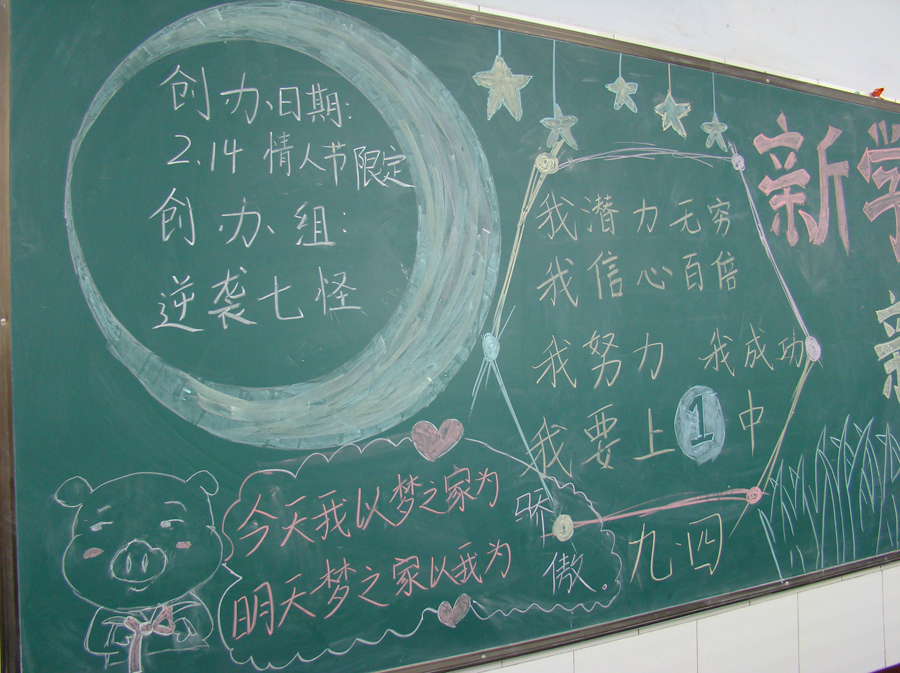 创办日期:
2.14 情人节限定
创办组:
逆袭七怪
我潜力无穷
我信心百倍
我努力 我成功
我要上1中
九.四
今天我以梦之家为骄
明天梦之家以我为傲。
新学
新